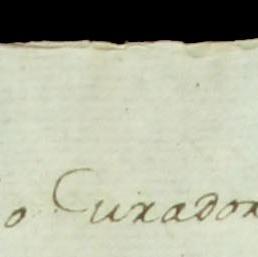 o Curador